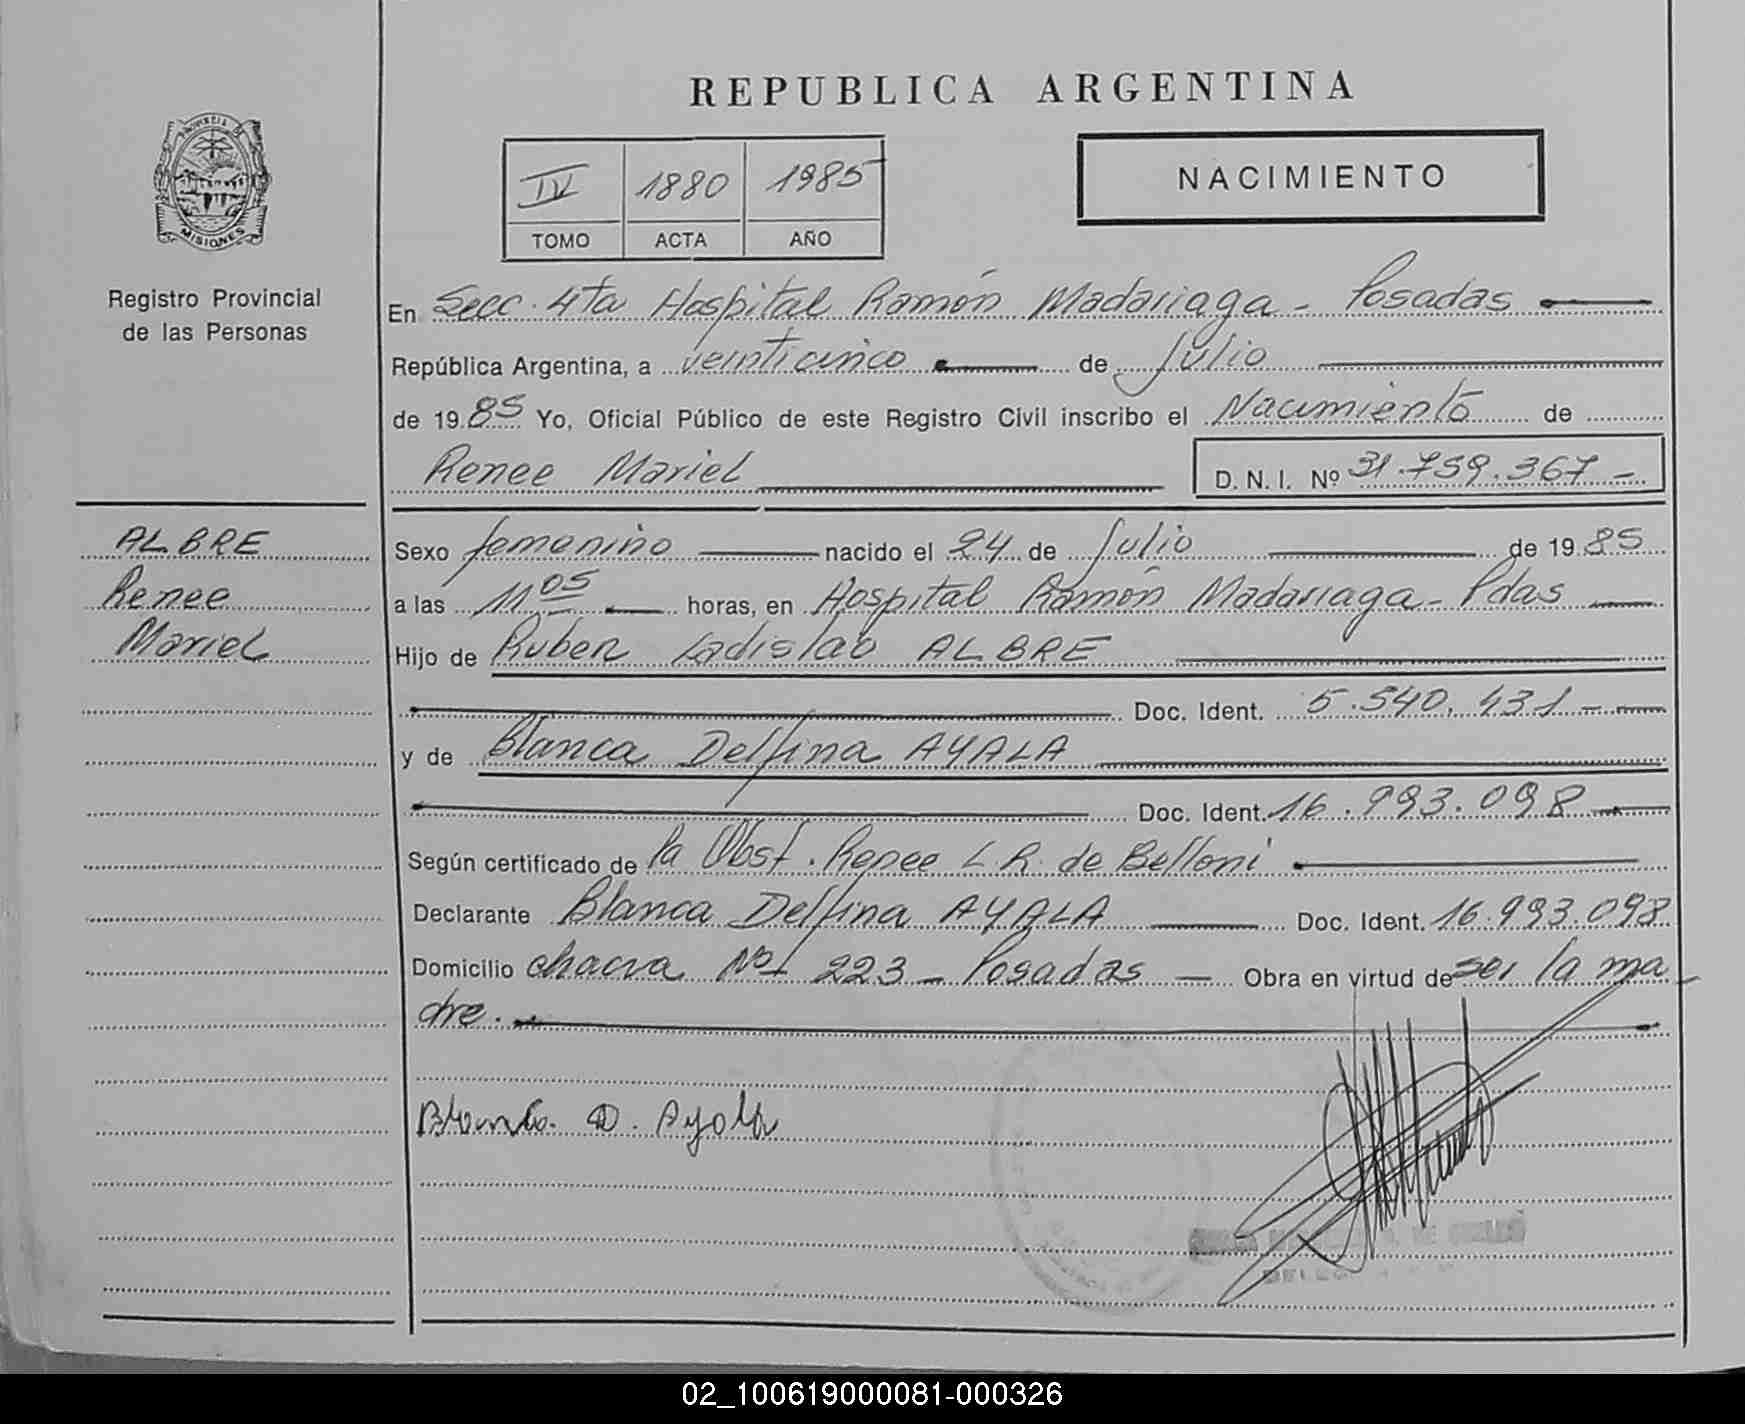 REPUBLICA ARGENTINA
PROVINCIA DE
MISIONES
Registro Provincial
de las Personas
IV 1880 1985
TOMO ACTA AÑO
NACIMIENTO
En Secc. 4ta Hospital Ramón Madariaga - Posadas
República Argentina, a veinticinco de Julio
de 1985 Yo, Oficial Público de este Registro Civil inscribo el Nacimiento de
Renee Mariel D. N. I. Nº 31.759.367-
ALBRE
Renee
Mariel
Sexo femenino nacido el 24 de Julio de 1985
a las 11 05 horas, en Hospital Ramón Madariaga - Pdas
Hijo de Ruben Ladislao ALBRE
Doc. Ident. 5.540.431 -
y de Blanca Delfina AYALA
Doc. Ident. 16.993.098
Según certificado de la Obst. Renee L R. de Belloni
Declarante Blanca Delfina AYALA Doc. Ident. 16.993.098
Domicilio chacra Nº 223 - Posadas - Obra en virtud de ser la ma
dre.
Blanca D. Ayala
02_100619000081-000326